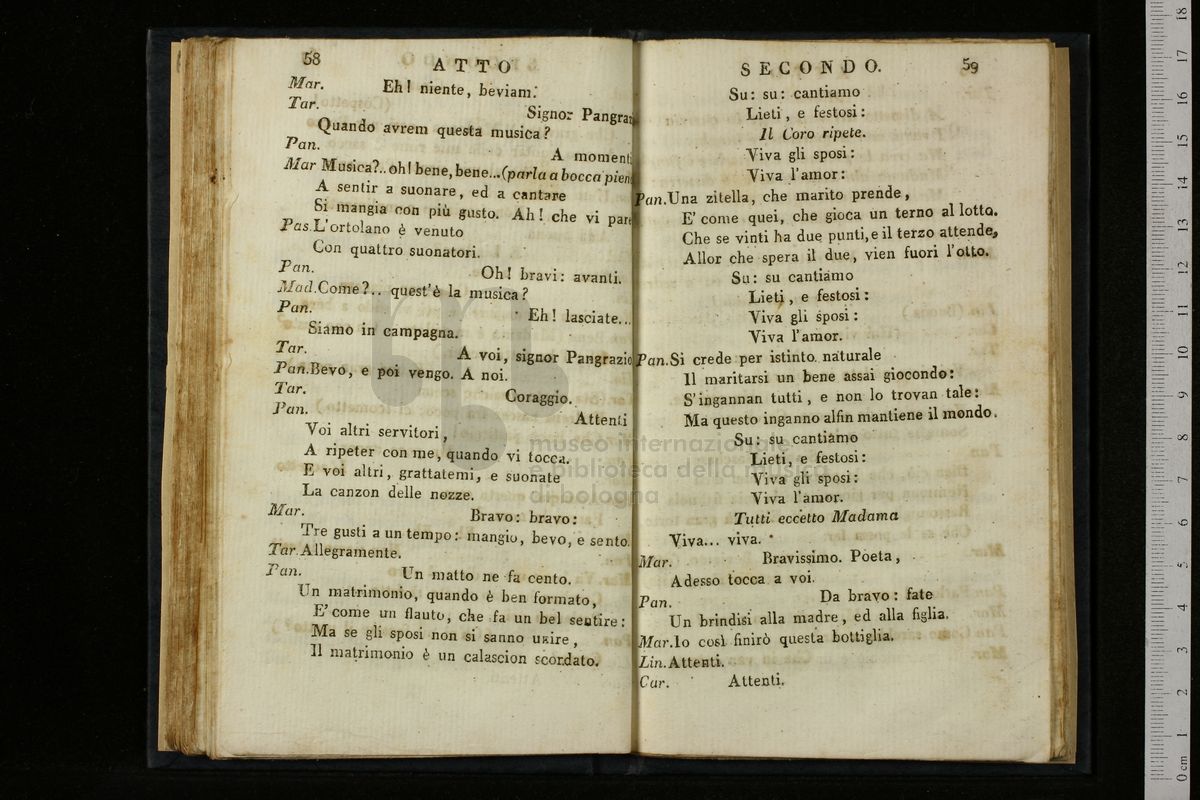 58
ATTO
Mar. Eh! niente, beviam:
Tar. Signor Pangra
Quando avrem questa musica?
Pan. A momenti
Mar Musica?.. oh! bene, bene...(parla a bocca pien
A sentir a suonare, ed a cantare
Si mangia con più gusto. Ah! che vi pare
Pas. L'ortolano è venuto
Con quattro suonatori.
Pan. Oh! bravi: avanti.
Mad. Come?.. quest'è la musica?
Pan. Eh! lasciate...
Siamo in campagna.
Tar. A voi, signor Pangrazio
Pan. Bevo, e poi vengo. A noi.
Tar. Coraggio.
Pan. Attenti
Voi altri servitori,
A ripeter con me, quando vi tocca.
E voi altri, grattatemi, e suonate
La canzon delle nozze.
Mar. Bravo: bravo:
Tre gusti a un tempo: mangio, bevo, e sento.
Tar. Allegramente.
Pan. Un matto ne fa cento.
Un matrimonio, quando è ben formato,
E' come un flauto, che fa un bel sentire:
Ma se gli sposi non si sanno unire,
Il matrimonio è un calascion scordato.
SECONDO.
59
Su: su: cantiamo
Lieti, e festosi:
Il Coro ripete.
Viva gli sposi:
Viva l'amor:
Pan. Una zitella, che marito prende,
E' come quei, che gioca un terno al lotto.
Che se vinti ha due punti, e il terzo attende,
Allor che spera il due, vien fuori l'otto.
Su: su cantiamo
Lieti, e festosi:
Viva gli sposi:
Viva l'amor.
Pan. Si crede per istinto naturale
Il maritarsi un bene assai giocondo:
S'ingannan tutti, e non lo trovan tale:
Ma questo inganno alfin mantiene il mondo.
Su: su cantiamo
Lieti, e festosi:
Viva gli sposi:
Viva l'amor.
Tutti eccetto Madama
Viva... viva.
Mar. Bravissimo. Poeta,
Adesso tocca a voi.
Pan. Da bravo: fate
Un brindisi alla madre, ed alla figlia.
Mar. Io così finirò questa bottiglia.
Lin. Attenti.
Car. Attenti.
museo internazionale
e biblioteca della musica
di bologna
0 cm 1 2 3 4 5 6 7 8 9 10 11 12 13 14 15 16 17 18